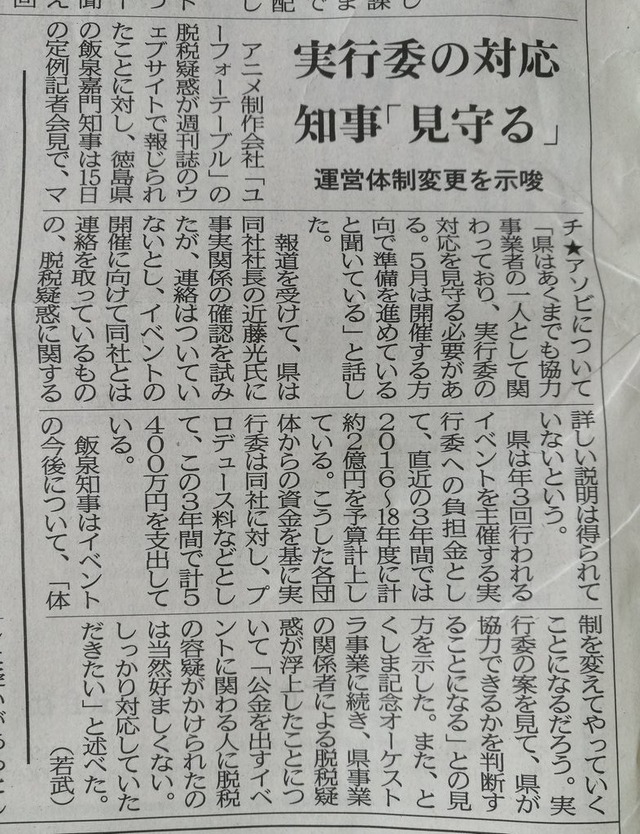 実行委の対応
知事「見守る」
運営体制変更を示唆
アニメ制作会社「ユ
ーフォーテーブル」の
脱税疑惑が週刊誌のウ
ェブサイトで報じられ
たことに対し、徳島県
の飯泉嘉門知事は15日
の定例記者会見で、マ
チ★アソビについて
「県はあくまでも協力
事業者の一人として関
わっており、実行委の
対応を見守る必要があ
る。5月は開催する方
向で準備を進めている
と聞いている」と話し
た。
報道を受けて、県は
同社社長の近藤光氏に
事実関係の確認を試み
たが、連絡はついてい
ないとし、イベントの
開催に向けて同社とは
連絡を取っているもの
の、脱税疑惑に関する
詳しい説明は得られて
いないという。
県は年3回行われる
イベントを主催する実
行委への負担金とし
て、直近の3年間では
2016〜18年度に計
約2億円を予算計上し
ている。こうした各団
体からの資金を基に実
行委は同社に対し、プ
ロデュース料などとし
て、この3年間で計5
400万円を支出して
いる。
飯泉知事はイベント
の今後について、「体
制を変えてやっていく
ことになるだろう。実
行委の案を見て、県が
協力できるかを判断す
ることになる」との見
方を示した。また、と
くしま記念オーケスト
ラ事業に続き、県事業
の関係者による脱税疑
惑が浮上したことにつ
いて「公金を出すイベ
ントに関わる人に脱税
の容疑がかけられたの
は当然好ましくない。
しっかり対応していた
だきたい」と述べた。
（若武）